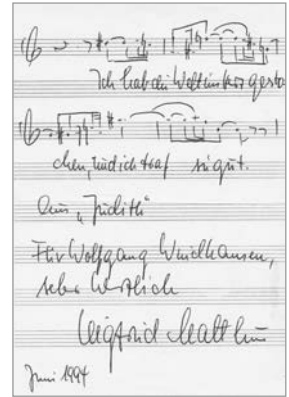 Ich hab die Welt ins Herz gesto
chen, und ich traf sie gut.
Aus „Judith“
Für Wolfgang Windhausen,
sehr herzlich
Siegfried Matthus
Juni 1994